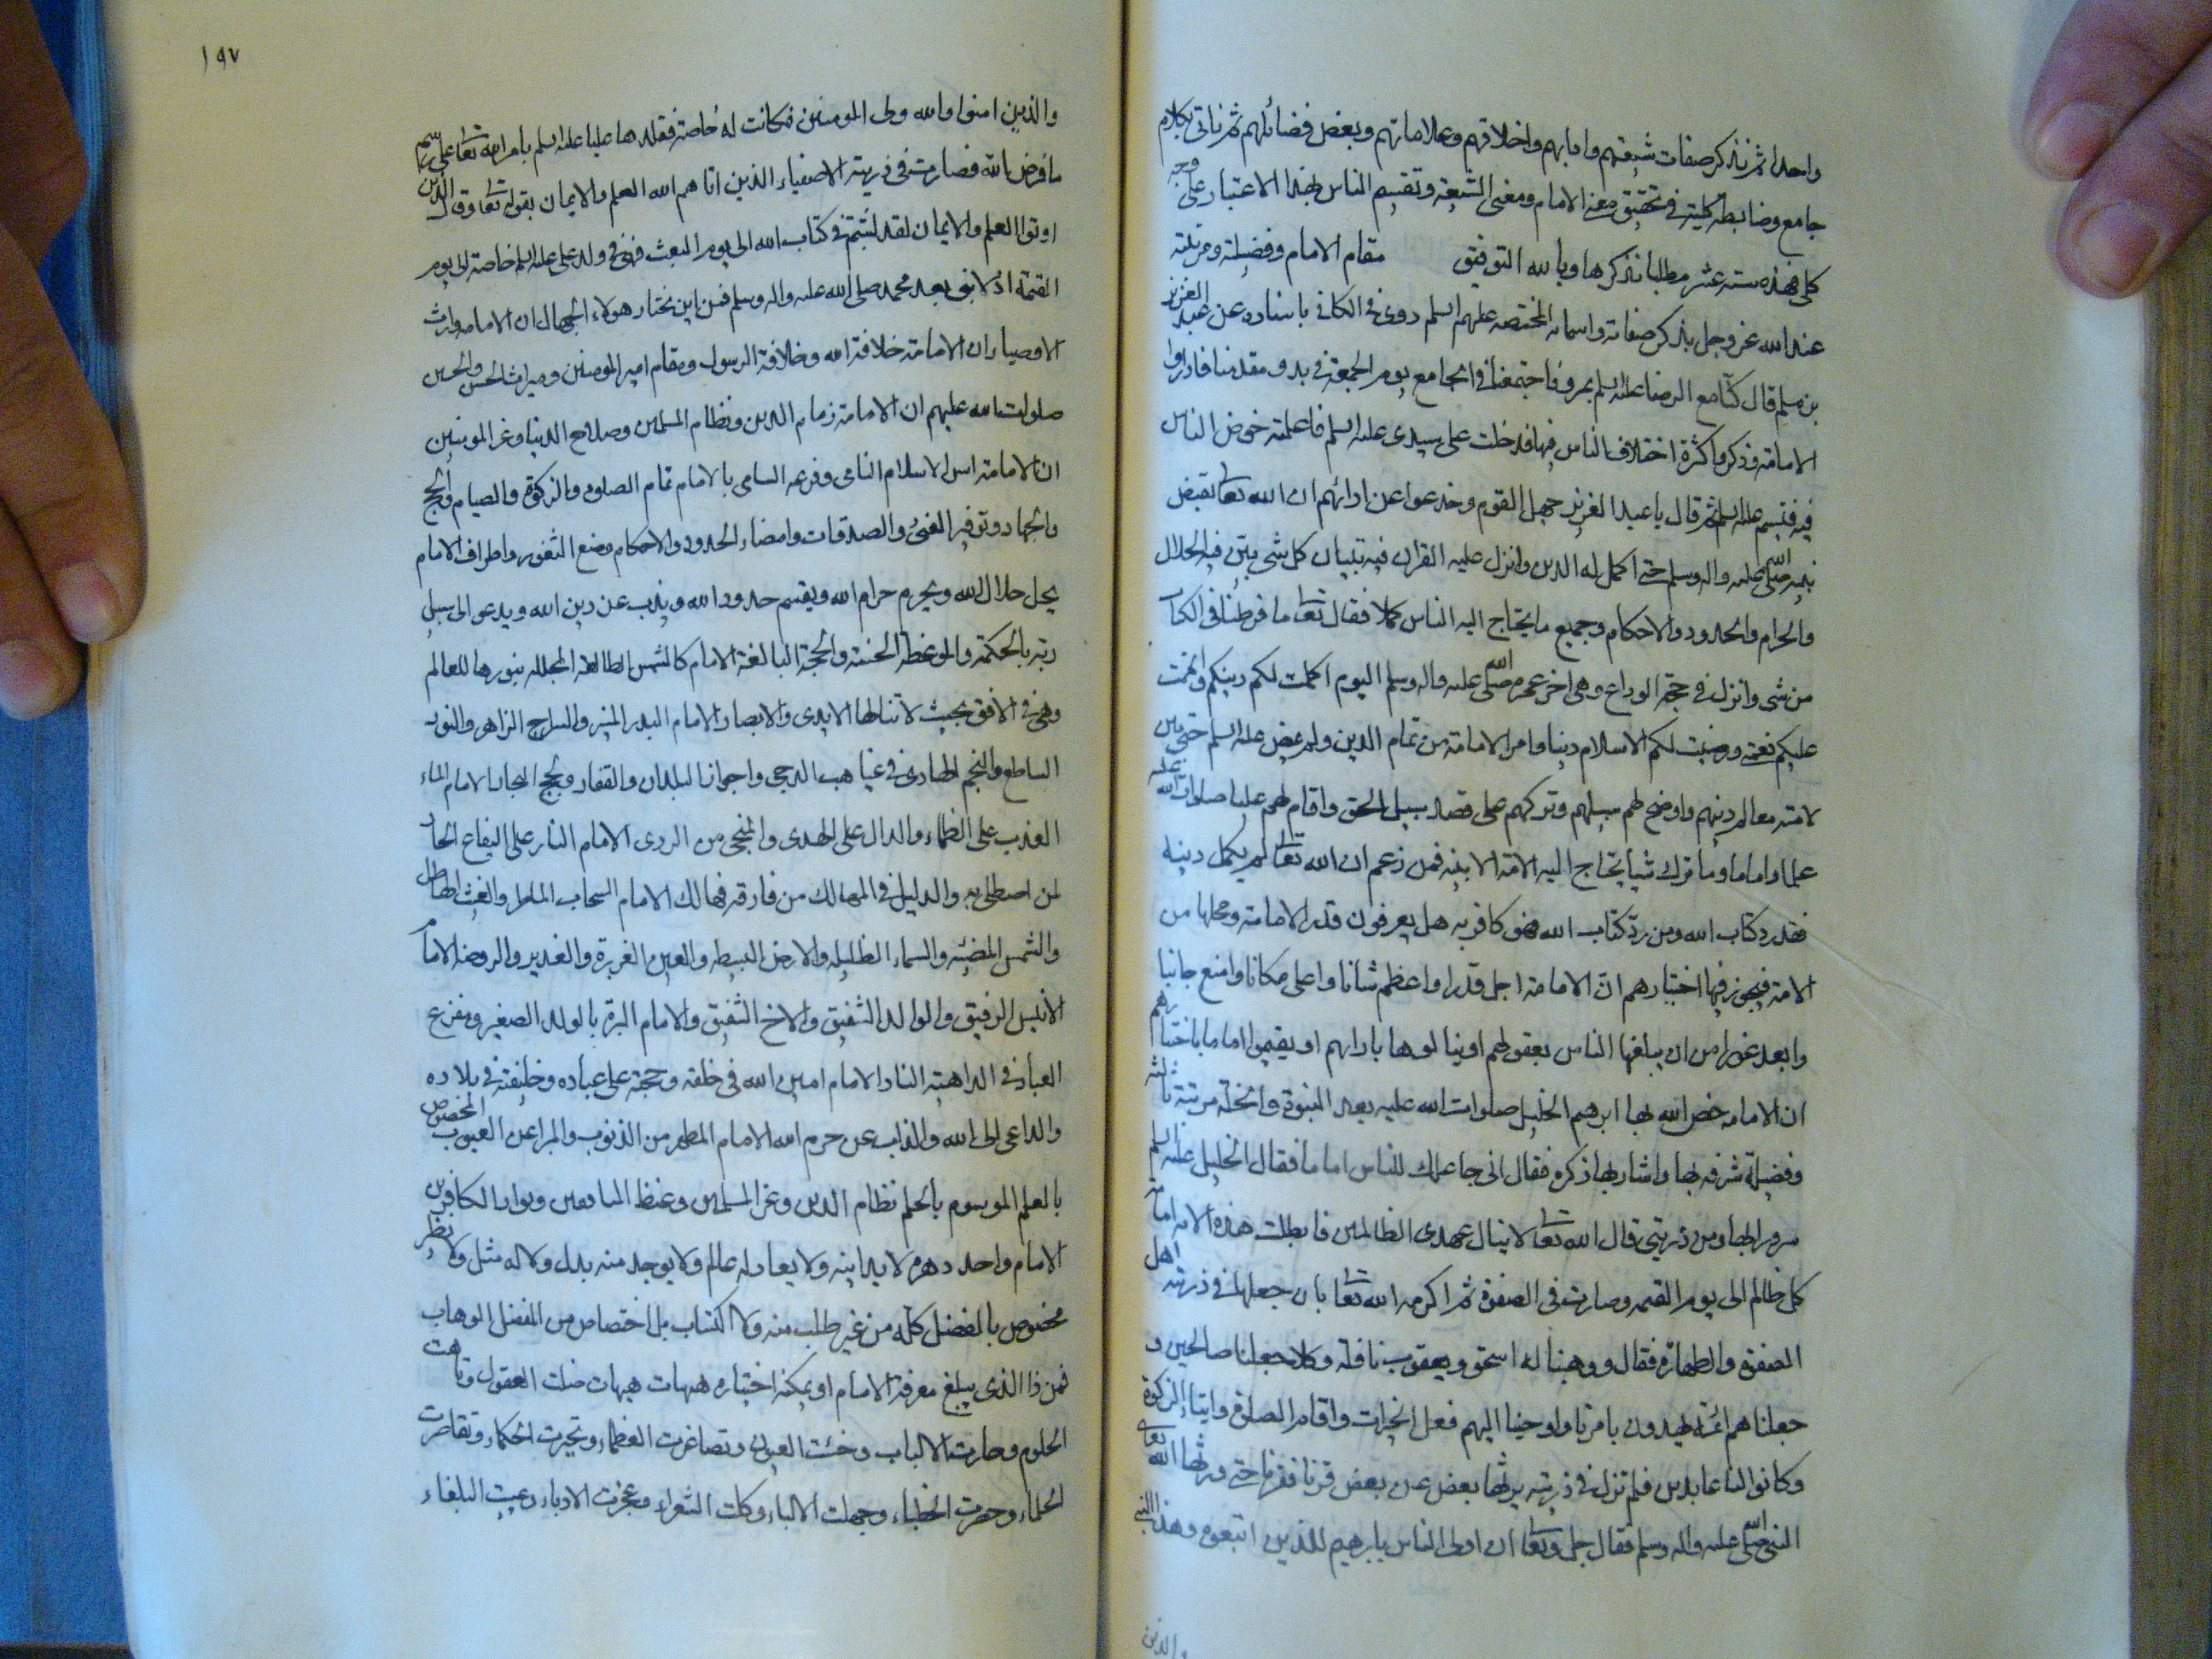 واحدا ثم نذكر صفات شيعتهم وادابهم واخلاقهم وعلاماتهم وبعض فضائلهم ثم ناتى بكلام
جامع وضابطة كلية في تحقيق معنى الامام ومعنى الشيعة وتقسيم الناس بهذا الاعتبار على وجه
كلى فهذه ستة عشر مطلبا نذكرها وبالله التوفيق مقام الامام وفضيلته ومنزلته
عند الله عز وجل بذكر صفاته واسمائه المختصة عليهم السلم روى في الكافى باسناده عن عبد العزيز
بن مسلم قال كنا مع الرضا عليه السلم بمرو فاجتمعنا في الجامع يوم الجمعة في بدو مقدمنا فاداروا
الامامة وذكروا كثرة اختلاف الناس فيها فدخلت على سيدى عليه السلم فاعلمته خوض الناس
فيه فتبسم عليه السلم ثم قال يا عبد العزيز جهل القوم وخدعوا عن ارائهم ان الله تعا لم يقبض
نبيه صلى الله عليه واله وسلم حتى اكمل له الدين وانزل عليه القران فيه تبيان كل شى بين فيه الحلال
والحرام والحدود والاحكام وجميع ما يحتاج اليه الناس كملا فقال تعا ما فرطنا في الكتاب
من شى وانزل في حجة الوداع وهى اخر عمره صلى الله عليه واله وسلم اليوم اكملت لكم دينكم واتممت
عليكم نعمتى ورضيت لكم الاسلام دينا وامر الامامة من تمام الدين ولم يمض عليه السلم حتى بين
لامته معالم دينهم واوضح لهم سبيلهم وتركهم على قصد سبيل الحق واقام لهم عليا صلوات الله عليه
علما واماما وما ترك شيئا يحتاج اليه الامة الا بينه فمن زعم ان الله تعا لم يكمل دينه
فقد رد كتاب الله ومن رد كتاب الله فهو كافر به هل يعرفون قدر الامامة ومحلها من
الامة فيجوز فيها اختيارهم ان الامامة اجل قدرا واعظم شانا واعلى مكانا وامنع جانبا
وابعد غورا من ان يبلغها الناس بعقولهم او ينالوها بارائهم او يقيموا اماما باختيارهم
ان الامامة خص الله بها ابرهيم الخليل صلوات الله عليه بعد النبوة والخلة مرتبة ثالثة
وفضيلة شرفه بها واشار بها ذكره فقال انى جاعلك للناس اماما فقال الخليل عليه السلم
سرورا بها ومن ذريتى قال الله تعا لا ينال عهدى الظالمين فابطلت هذه الاية امامة
كل ظالم الى يوم القيمة وصارت في الصفوة ثم اكرمه الله تعا بان جعلها في ذريته اهل
الصفوة والطهارة فقال ووهبنا له اسحق ويعقوب نافلة وكلا جعلنا صالحين و
جعلناهم ائمة يهدون بامرنا واوحينا اليهم فعل الخيرات واقام الصلوة وايتاء الزكوة
وكانوا لنا عابدين فلم تزل في ذريته يرثها بعض عن بعض قرنا فقرنا حتى ورثها الله تعا
النبى صلى الله عليه واله وسلم فقال جل وتعا ان اولى الناس بابرهيم للذين اتبعوه وهذا النبى
والذين
١٩٧
والذين امنوا والله ولى المومنين فكانت له خاصة فقلدها عليا عليه السلم بامر الله تعا على رسم
ما فرض الله فصارت في ذريته الاصفياء الذين اتاهم الله العلم والايمان بقوله تعا وقال الذين
اوتوا العلم والايمان لقد لبثتم في كتاب الله الى يوم البعث فهى في ولد على عليه السلم خاصة الى يوم
القيمة اذ لا نبى بعد محمد صلى الله عليه واله وسلم فمن اين يختار هولاء الجهال ان الامامة وارث
الاوصياء ان الامامة خلافة الله وخلافة الرسول ومقام امير المومنين وميراث الحسن والحسين
صلوات الله عليهم ان الامامة زمام الدين ونظام المسلمين وصلاح الدنيا وعز المومنين
ان الامامة اس الاسلام النامى وفرعه السامى بالامام تمام الصلوة والزكوة والصيام والحج
والجهاد وتوفير الفىء والصدقات وامضاء الحدود والاحكام ومنع الثغور واطراف الامام
يحل حلال الله ويحرم حرام الله ويقيم حدود الله ويذب عن دين الله ويدعو الى سبيل
ربه بالحكمة والموعظة الحسنة والحجة البالغة الامام كالشمس الطالعة المجللة بنورها للعالم
وهى في الافق بحيث لا تنالها الايدى والابصار الامام البدر المنير والسراج الزاهر والنور
الساطع والنجم الهادى في غياهب الدجى واجواز البلدان والقفار ولجج البحار الامام الماء
العذب على الظماء والدال على الهدى والمنجى من الردى الامام النار على اليفاع الحار
لمن اصطلى به والدليل في المهالك من فارقه فهالك الامام السحاب الماطر والغيث الهاطل
والشمس المضيئة والسماء الظليلة والارض البسيطة والعين الغزيرة والغدير والروضة الامام
الانيس الرفيق والوالد الشفيق والاخ الشقيق والامام البرة بالولد الصغير ومفزع
العباد في الداهية الناد الامام امين الله في خلقه وحجته على عباده وخليفته في بلاده
والداعى الى الله والذاب عن حرم الله الامام المطهر من الذنوب والمبرا عن العيوب المخصوص
بالعلم الموسوم بالحلم نظام الدين وعز المسلمين وغيظ المنافقين وبوار الكافرين
الامام واحد دهره لا يدانيه ولا يعادله عالم ولا يوجد منه بدل ولا له مثل ولا نظير
مخصوص بالفضل كله من غير طلب منه ولا اكتساب بل اختصاص من المفضل الوهاب
فمن ذا الذى يبلغ معرفة الامام او يمكنه اختياره هيهات هيهات ضلت العقول وتاهت
الحلوم وحارت الالباب وخسئت العيون وتصاغرت العظماء وتحيرت الحكماء وتقاصرت
الحلماء وحصرت الخطباء وجهلت الالباء وكلت الشعراء وعجزت الادباء وعييت البلغاء